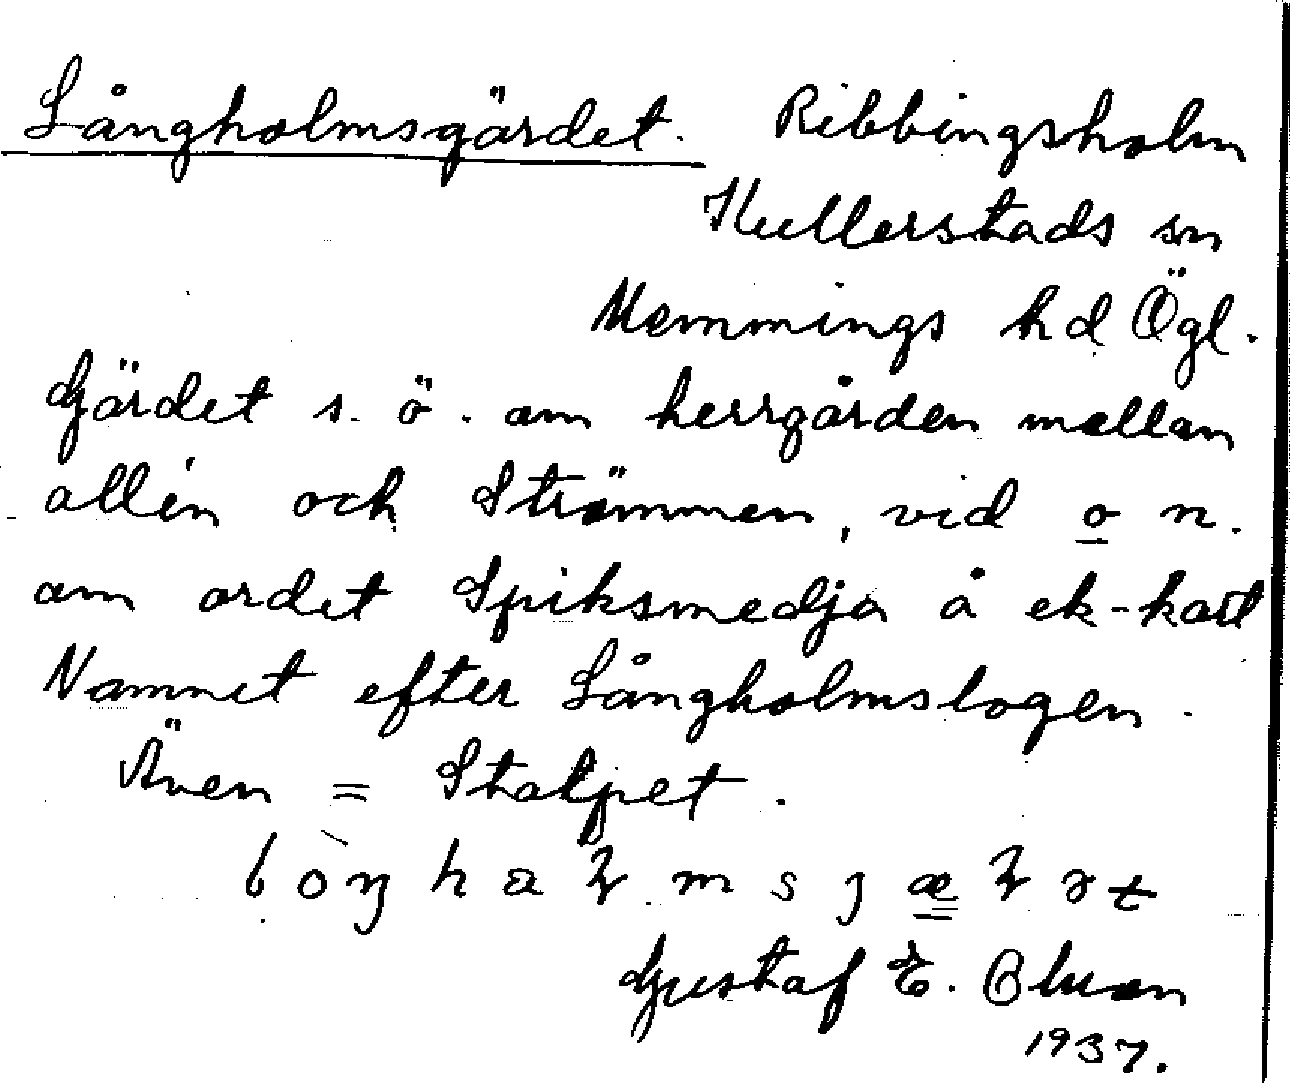 Långholmsgärdet. Ribbingsholm
Kullerstads sn
Memmings hd Ögl.
Gärdet s. ö. om herrgården mellan
allén och Strömmen, vid o n.
om ordet Spiksmedja å ek-kart
Namnet efter Långholmslogen.
Även = Stalpet.
Gustaf E.
1937.